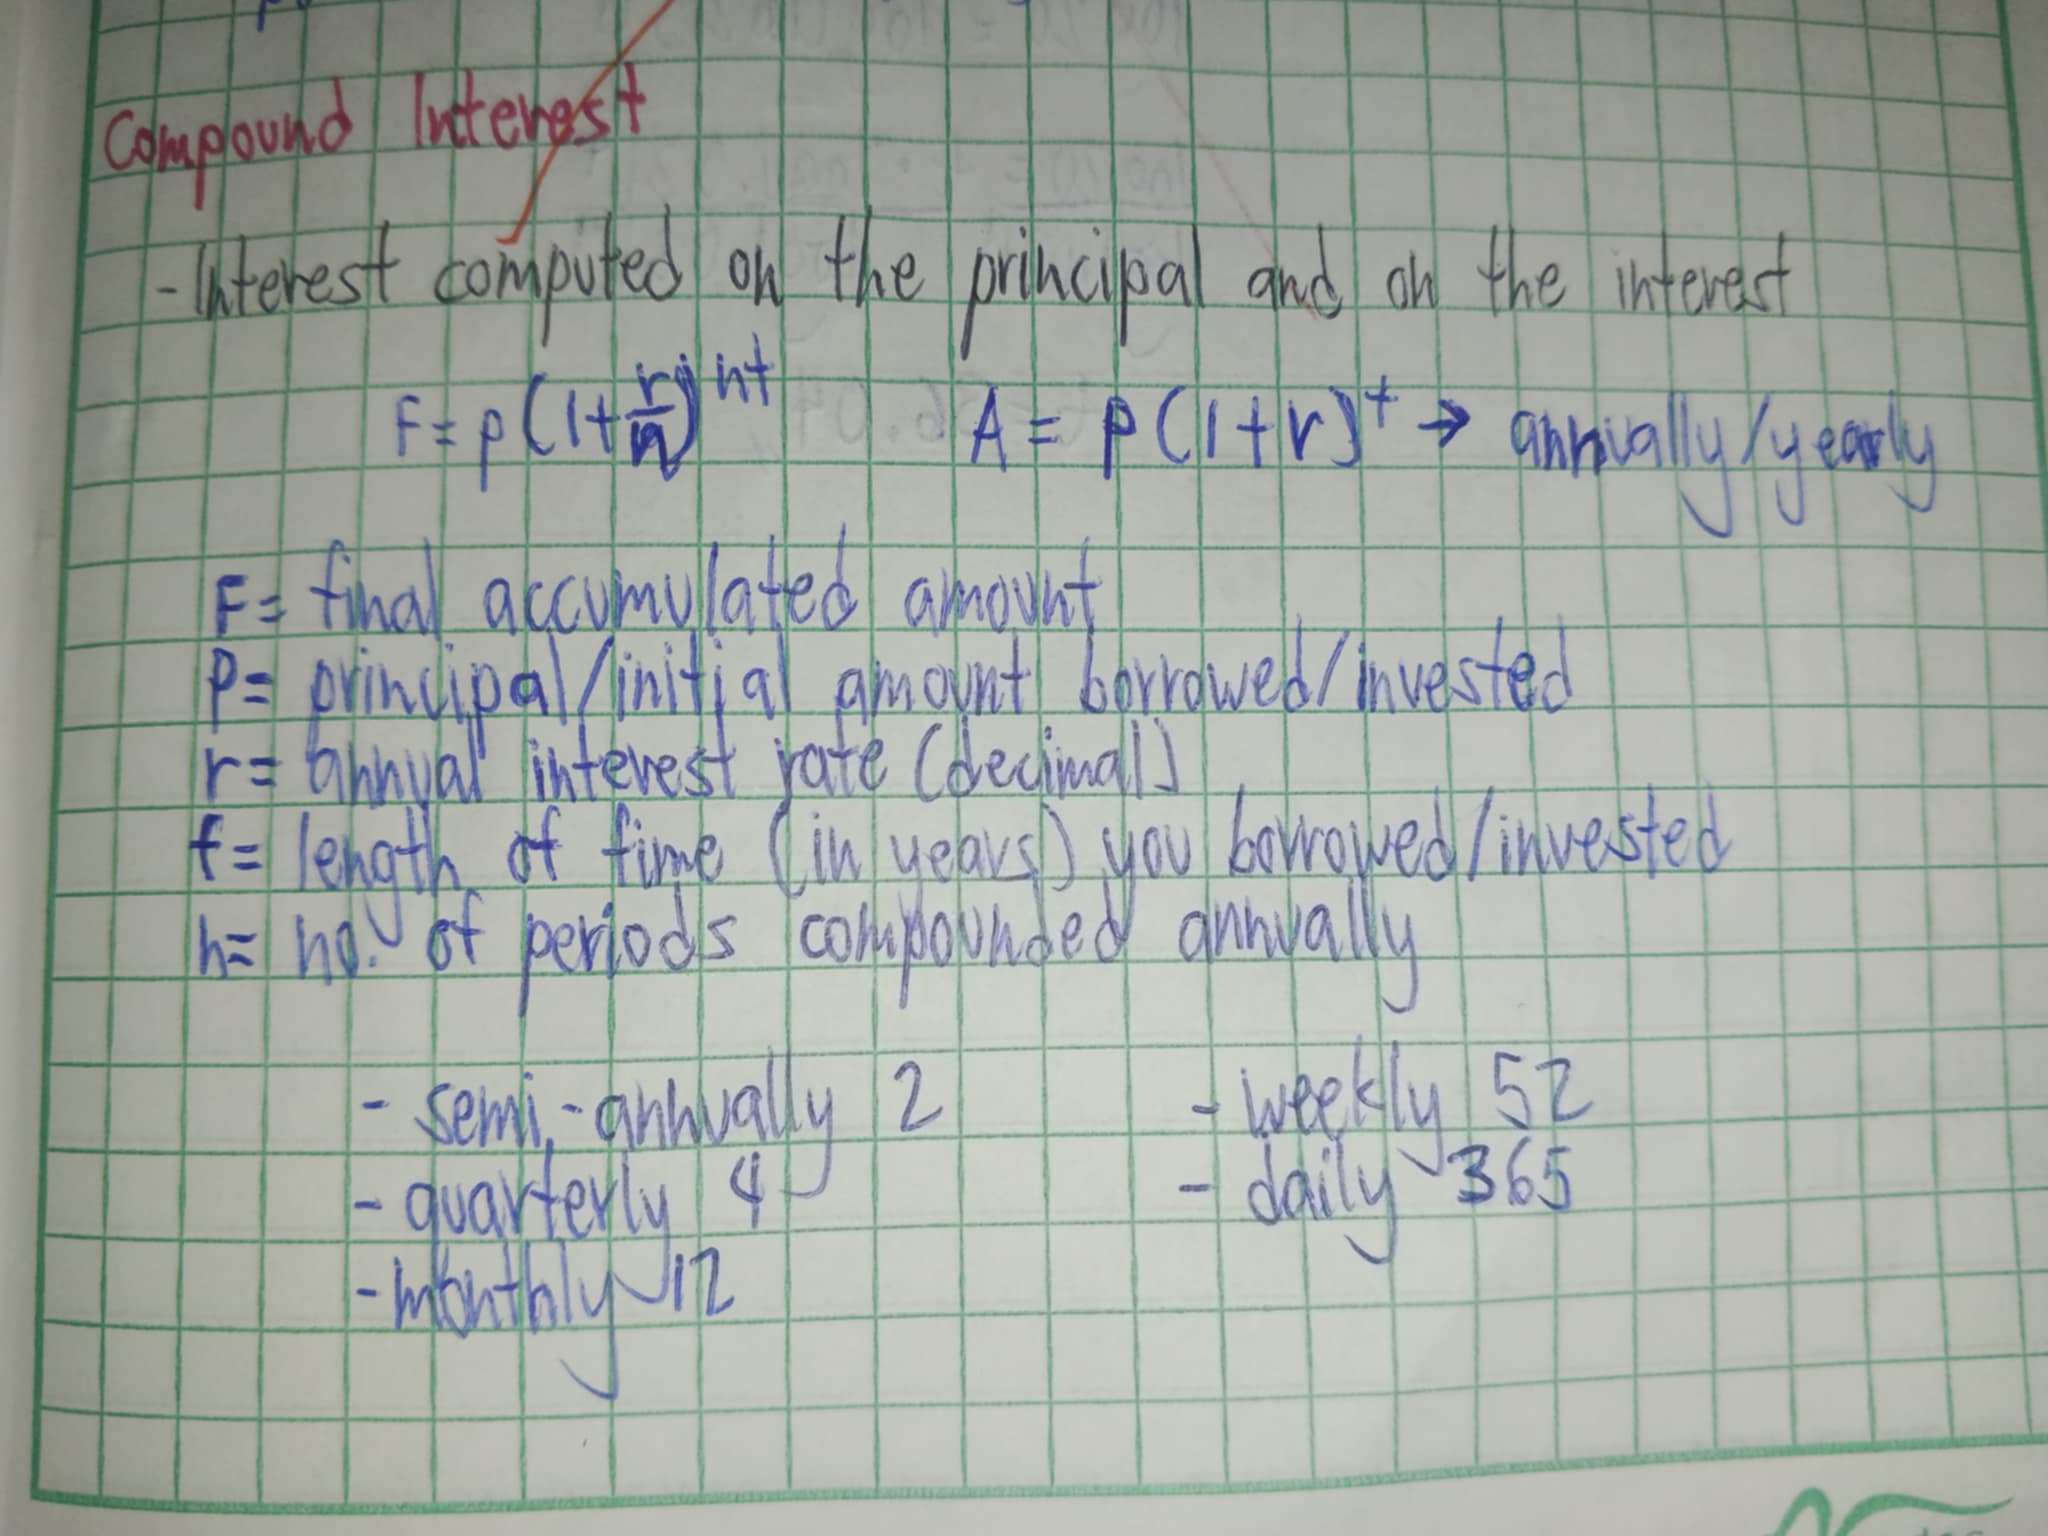 Compound Interest
- Interest computed on the principal and on the interest
F = p(1+r/n)^nt A = P(1+r)^t → annually/yearly
F = final accumulated amount
P = principal/initial amount borrowed/invested
r = annual interest rate (decimal)
t = length of time (in years) you borrowed/invested
n = no. of periods compounded annually
- semi-annually 2 - weekly 52
- quarterly 4 - daily 365
- monthly 12